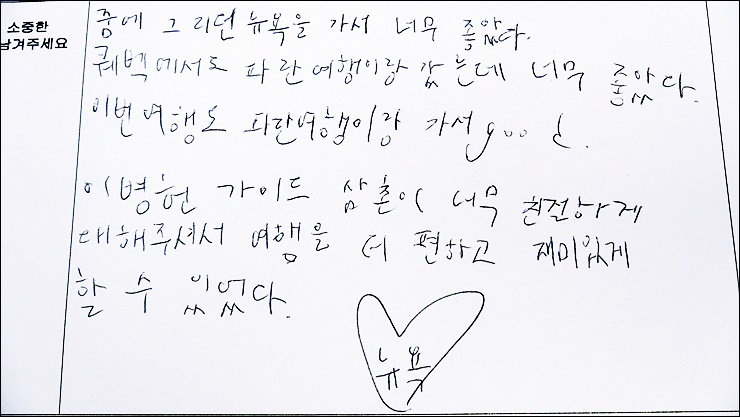 소중한
남겨주세요
줌에 그리던 뉴욕을 가서 너무 좋았다.
퀘벡에서도 파란여행이랑 갔는데 너무 좋았다.
이번여행도 파란여행이랑 가서 good.
이병헌 가이드 삼촌이 너무 친절하게
대해주셔서 여행을 더 편하고 재미있게
할 수 있었다.
뉴욕